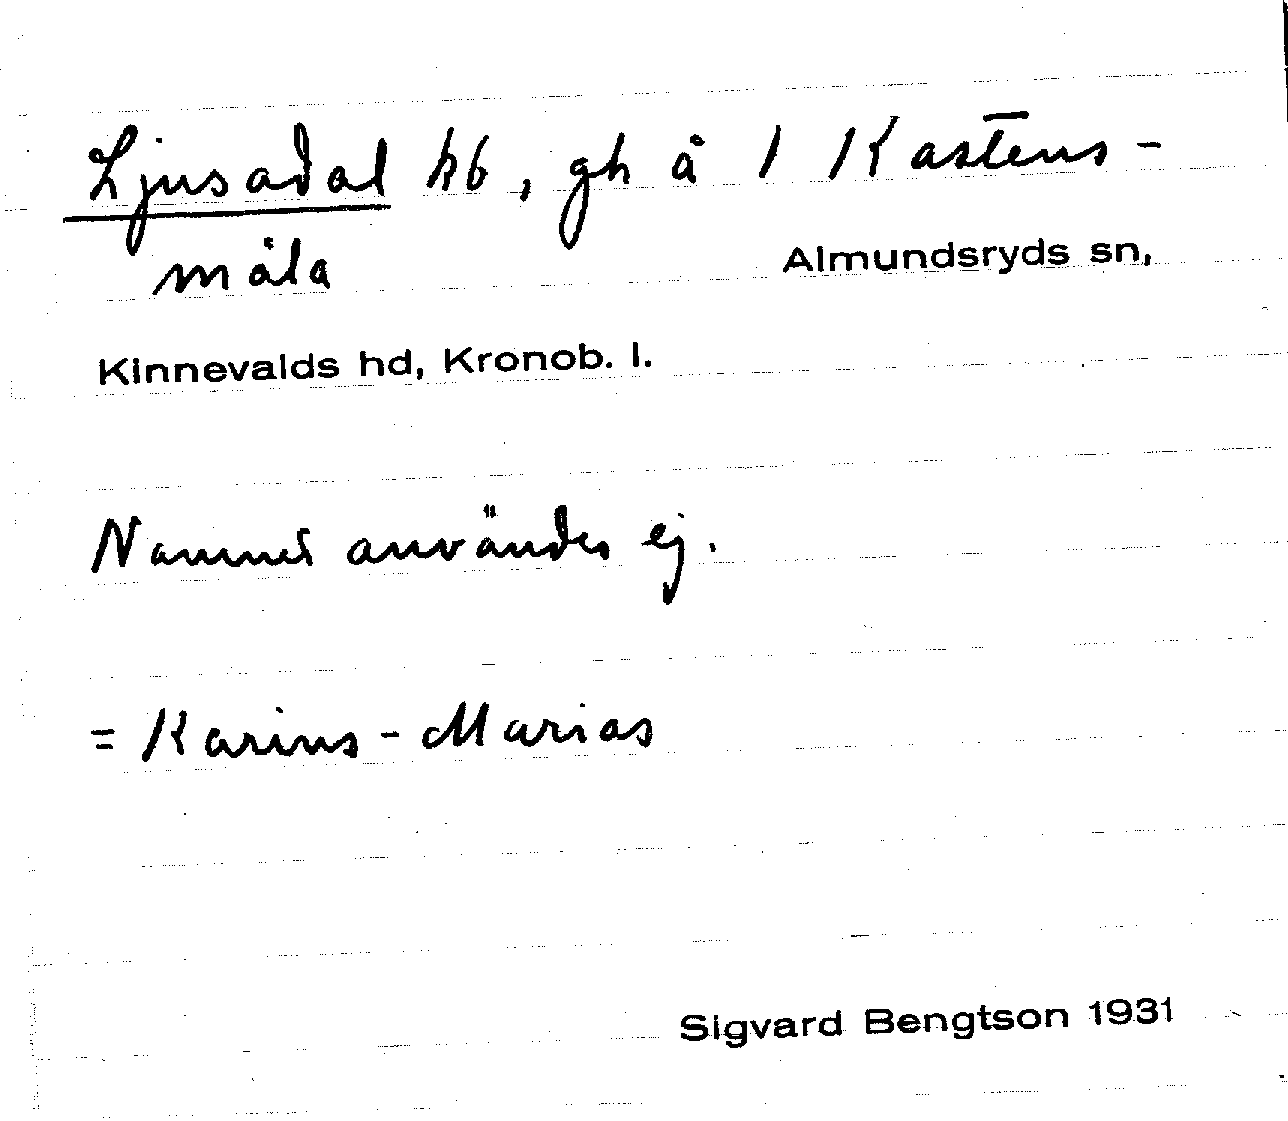 Ljusadal hb, gh å 1 Kastens-
måla Almundsryds sn,
Kinnevalds hd, Kronob. l.
Namnet användes ej.
= Karins-Marias
Sigvard Bengtson 1931